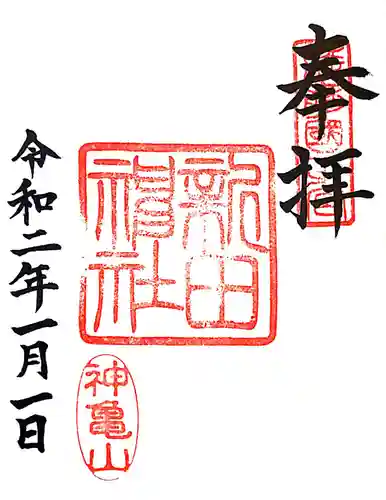 奉拝
新田神社
神亀山
令和二年一月一日